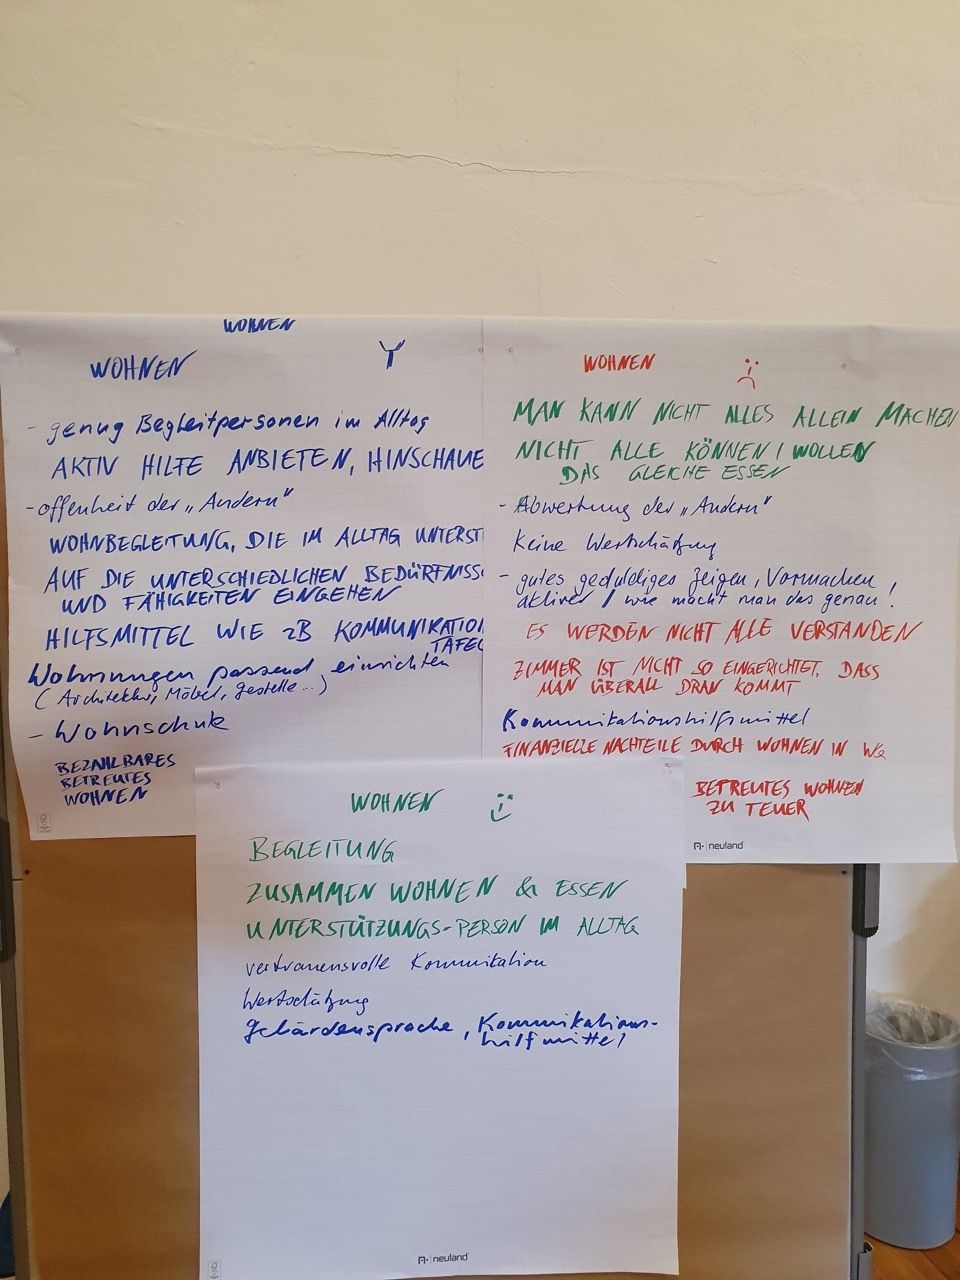 WOHNEN
WOHNEN
- genug Begleitpersonen im Alltag
AKTIV HILFE ANBIETEN, HINSCHAUE
- offenheit der „Andern"
WOHNBEGLEITUNG, DIE IM ALLTAG UNTERST
AUF DIE UNTERSCHIEDLICHEN BEDÜRFNISS
UND FÄHIGKEITEN EINGEHEN
HILFSMITTEL WIE ZB KOMMUNIKATION
TAFEL
Wohnungen passend einrichten
(Architektur, Möbel, Gestelle...)
- Wohnschule
BEZAHLBARES
BETREUTES
WOHNEN
WOHNEN
MAN KANN NICHT ALLES ALLEIN MACHEN
NICHT ALLE KÖNNEN / WOLLEN
DAS GLEICHE ESSEN
- Abwertung der „Andern"
Keine Wertschätzung
- gutes geduldiges Zeigen, Vormachen
aktives / wie macht man das genau!
ES WERDEN NICHT ALLE VERSTANDEN
ZIMMER IST NICHT SO EINGERICHTET, DASS
MAN ÜBERALL DRAN KOMMT
Kommunikationshilfsmittel
FINANZIELLE NACHTEILE DURCH WOHNEN IN WG
BETREUTES WOHNEN
ZU TEUER
neuland
WOHNEN
BEGLEITUNG
ZUSAMMEN WOHNEN & ESSEN
UNTERSTÜTZUNGS-PERSON IM ALLTAG
vertrauensvolle Kommunikation
Wertschätzung
Gebärdensprache, Kommunikations-
hilfmittel
neuland